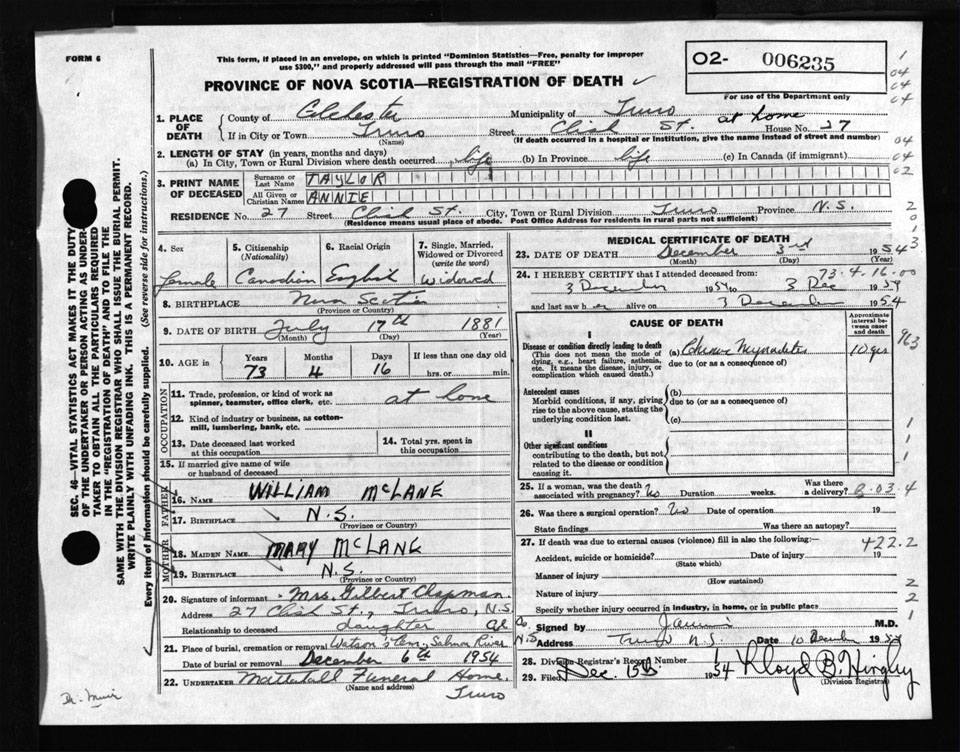 FORM 6
This form, if placed in an envelope, on which is printed "Dominion Statistics—Free, penalty for improper
use $300," and properly addressed will pass through the mail "FREE"
O2- 006235
For use of the Department only
PROVINCE OF NOVA SCOTIA—REGISTRATION OF DEATH ✓
1. PLACE OF DEATH
County of Colchester Municipality of Truro
If in City or Town Truro Street Clish St. at home House No. 27
(Name) (If death occurred in a hospital or institution, give the name instead of street and number)
2. LENGTH OF STAY (in years, months and days)
(a) In City, Town or Rural Division where death occurred life (b) In Province life (c) In Canada (if immigrant)
3. PRINT NAME OF DECEASED
Surname or Last Name TAYLOR
All Given or Christian Names ANNIE
RESIDENCE No. 27 Street Clish St. City, Town or Rural Division Truro Province N.S.
(Residence means usual place of abode. Post Office Address for residents in rural parts not sufficient)
4. Sex
female
5. Citizenship
(Nationality)
Canadian
6. Racial Origin
English
7. Single, Married,
Widowed or Divorced
(write the word)
Widowed
8. BIRTHPLACE Nova Scotia
(Province or Country)
9. DATE OF BIRTH July 17th 1881
(Month) (Day) (Year)
10. AGE
Years Months Days If less than one day old
73 4 16 hrs. or min.
OCCUPATION
11. Trade, profession, or kind of work as
spinner, teamster, office clerk, etc. at home
12. Kind of industry or business, as cotton-
mill, lumbering, bank, etc.
13. Date deceased last worked
at this occupation
14. Total yrs. spent in
this occupation
15. If married give name of wife
or husband of deceased
FATHER
16. NAME WILLIAM McLANE
17. BIRTHPLACE N.S.
(Province or Country)
MOTHER
18. MAIDEN NAME MARY McLANE
19. BIRTHPLACE N.S.
(Province or Country)
20. Signature of informant Mrs. Gilbert Chapman
Address 27 Clish St., Truro, N.S.
Relationship to deceased daughter
21. Place of burial, cremation or removal Watson's Cem., Salmon River
Date of burial or removal December 6th 1954
22. UNDERTAKER Mattatall Funeral Home,
(Name and address) Truro
MEDICAL CERTIFICATE OF DEATH
23. DATE OF DEATH December 3rd 1954
(Month) (Day) (Year)
73.4.16.00
24. I HEREBY CERTIFY that I attended deceased from:
3 December 1954 to 3 Dec 1954
and last saw her alive on 3 December 1954
CAUSE OF DEATH
Approximate
interval be-
tween onset
and death
I
Disease or condition directly leading to death
(This does not mean the mode of
dying, e.g., heart failure, asthenia,
etc. It means the disease, injury, or
complication which caused death.)
(a) Myocarditis 10 yrs
due to (or as a consequence of)
Antecedent causes
Morbid conditions, if any, giving
rise to the above cause, stating the
underlying condition last.
(b)
due to (or as a consequence of)
(c)
II
Other significant conditions
contributing to the death, but not
related to the disease or condition
causing it.
25. If a woman, was the death
associated with pregnancy? No Duration weeks. Was there
a delivery?
26. Was there a surgical operation? No Date of operation 19
State findings Was there an autopsy?
27. If death was due to external causes (violence) fill in also the following:
422.2
Accident, suicide or homicide? Date of injury 19
(State which)
Manner of injury
(How sustained)
Nature of injury
Specify whether injury occurred in industry, in home, or in public place
Signed by M.D.
Address Truro N.S. Date 10 December 1954
28. Division Registrar's Record Number
29. Filed Dec. 15th 1954 Lloyd B. Hingley
(Division Registrar)
SEC. 46—VITAL STATISTICS ACT MAKES IT THE DUTY
OF THE UNDERTAKER OR PERSON ACTING AS UNDER-
TAKER TO OBTAIN ALL THE PARTICULARS REQUIRED
IN THE "REGISTRATION OF DEATH" AND TO FILE THE
SAME WITH THE DIVISION REGISTRAR WHO SHALL ISSUE THE BURIAL PERMIT.
WRITE PLAINLY WITH UNFADING INK. THIS IS A PERMANENT RECORD.
Every item of information should be carefully supplied. (See reverse side for instructions.)
Dr. Muir